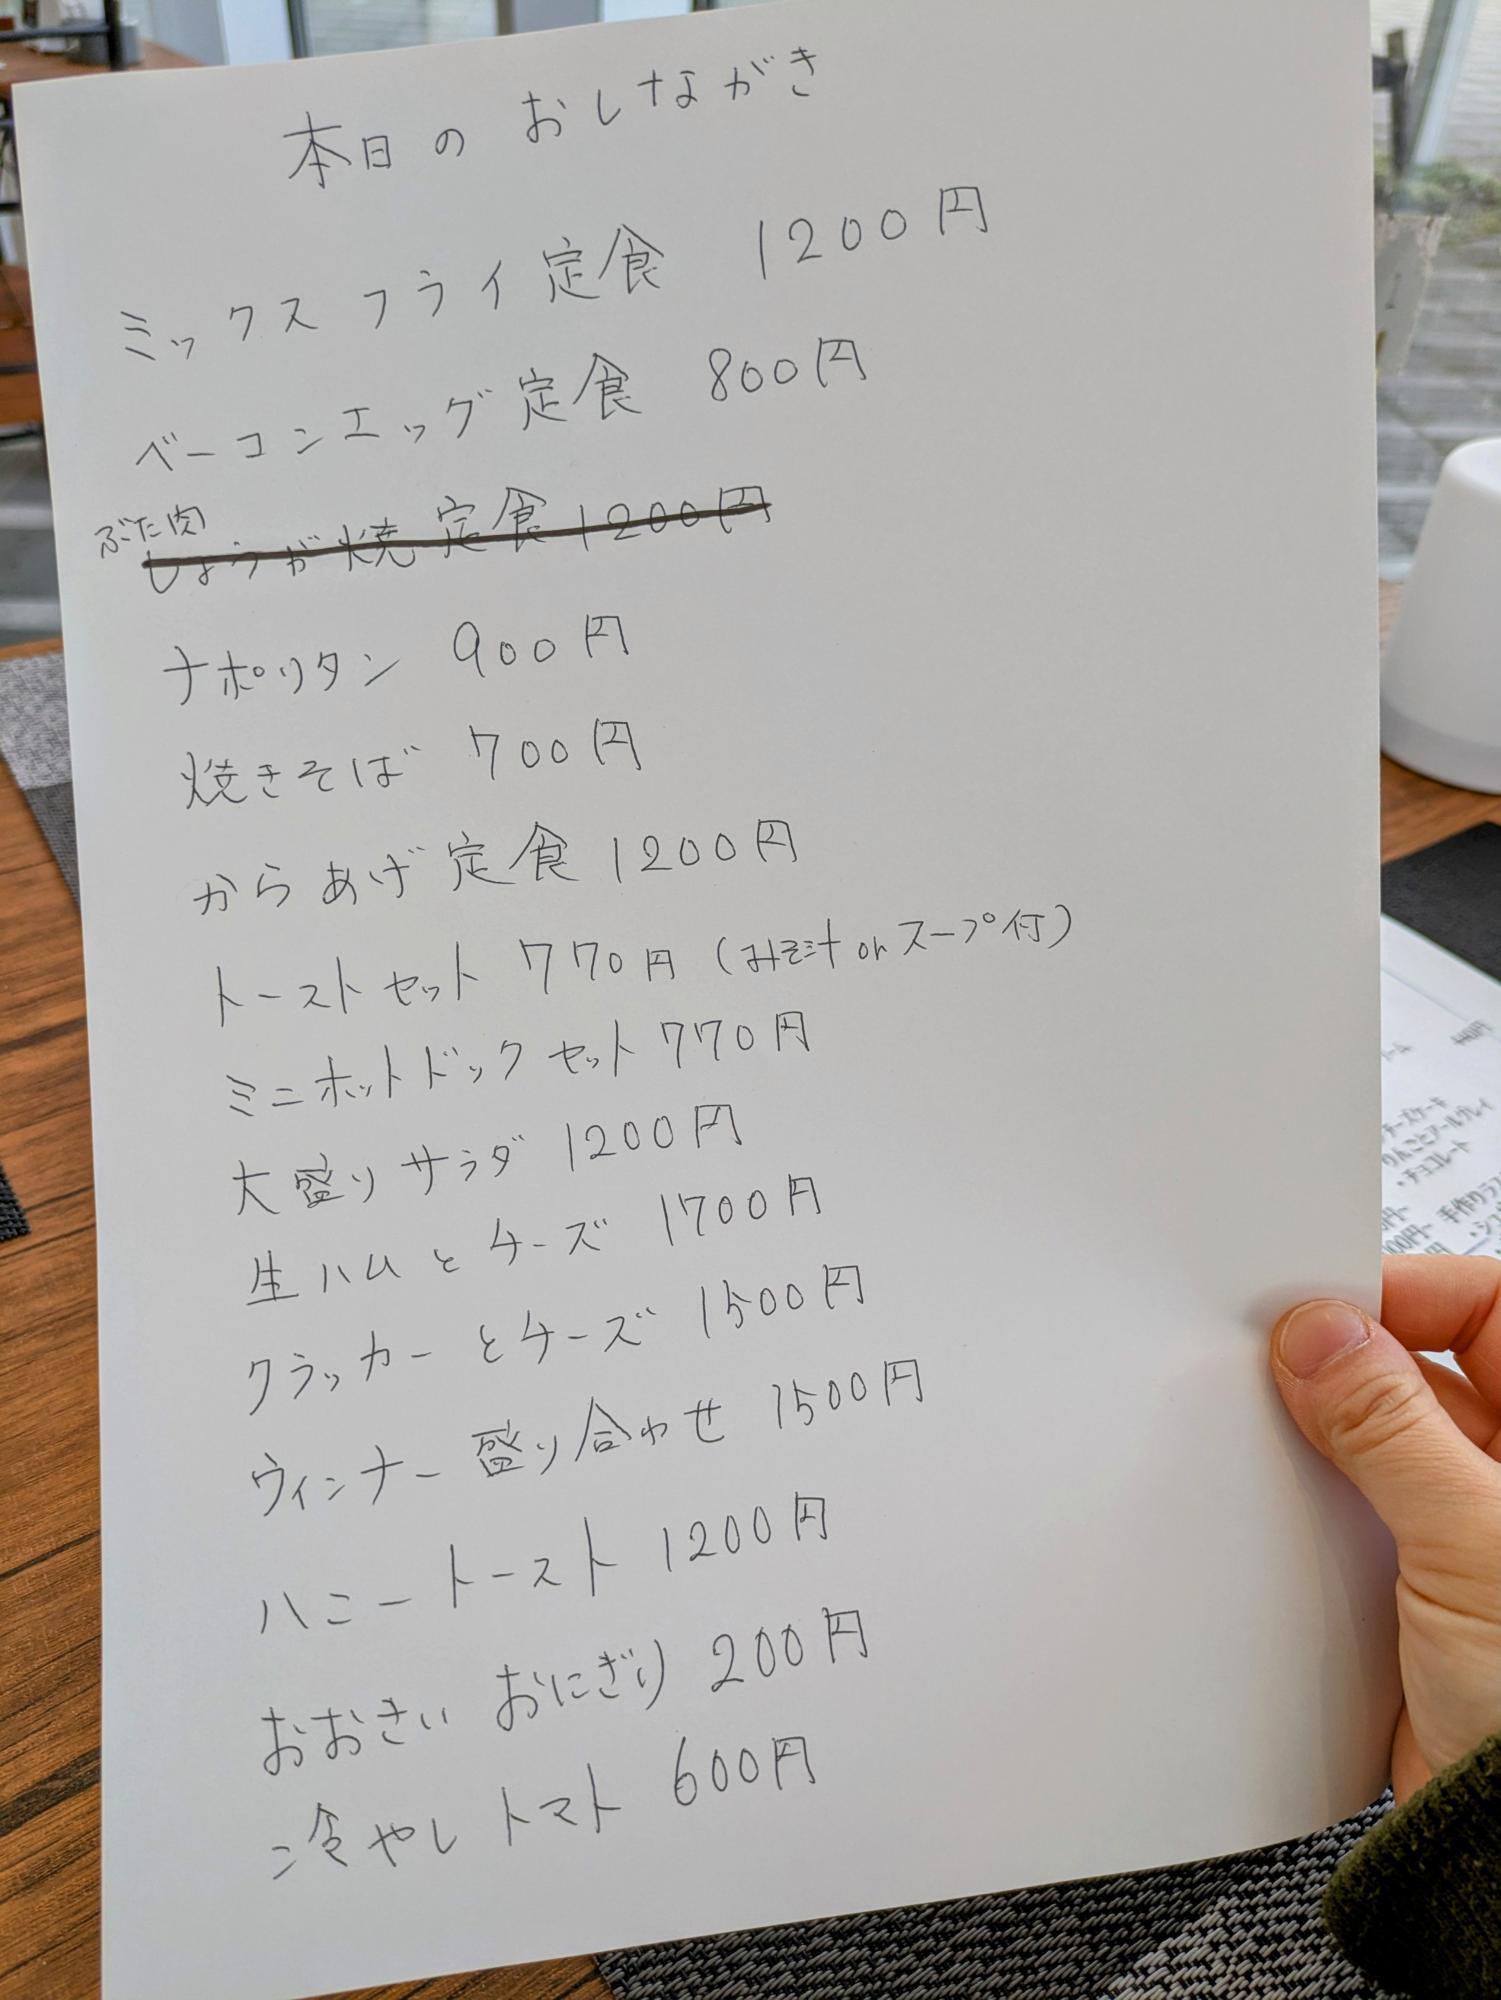 本日の おしながき
ミックスフライ定食 1200円
ベーコンエッグ定食 800円
ぶた肉
しょうが焼定食 1200円
ナポリタン 900円
焼きそば 700円
からあげ定食 1200円
トーストセット 770円 (みそ汁 or スープ付)
ミニホットドックセット 770円
大盛りサラダ 1200円
生ハムとチーズ 1700円
クラッカーとチーズ 1500円
ウィンナー盛り合わせ 1500円
ハニートースト 1200円
おおきい おにぎり 200円
冷やしトマト 600円
チーズケーキ
りんごとアールグレイ
・チョコレート